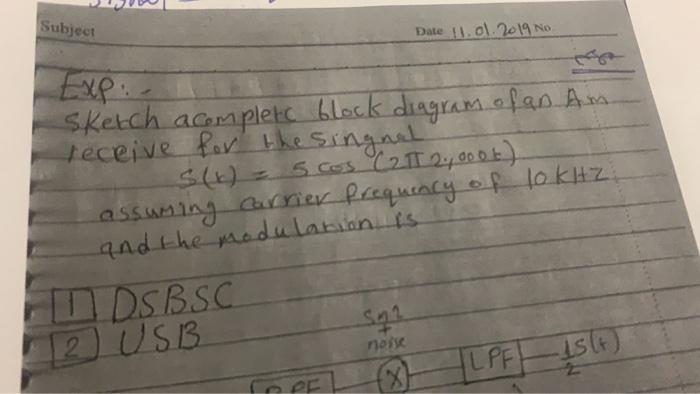 Subject
Date 11.01.2019 No
Exp:-
Sketch acomplete block diagram of an Am
receive for the singnal
S(t) = 5 cos (2π 2,000t)
assuming carrier frequency of 10 kHZ
and the modulation is
1 DSBSC
2 USB
+
noise
X LPF 1/2 S(t)